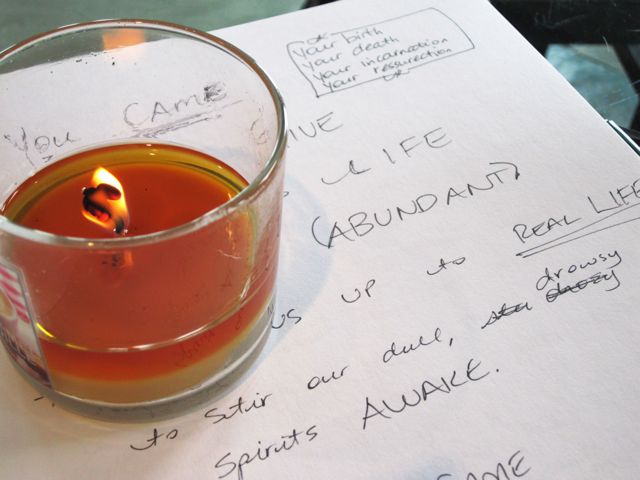 your birth
your death
your incarnation
your ressurection
You CAME GIVE
us LIFE
(ABUNDANT)
us UP to REAL LIFE
drowsy
to stir our dull,
spirits AWAKE.